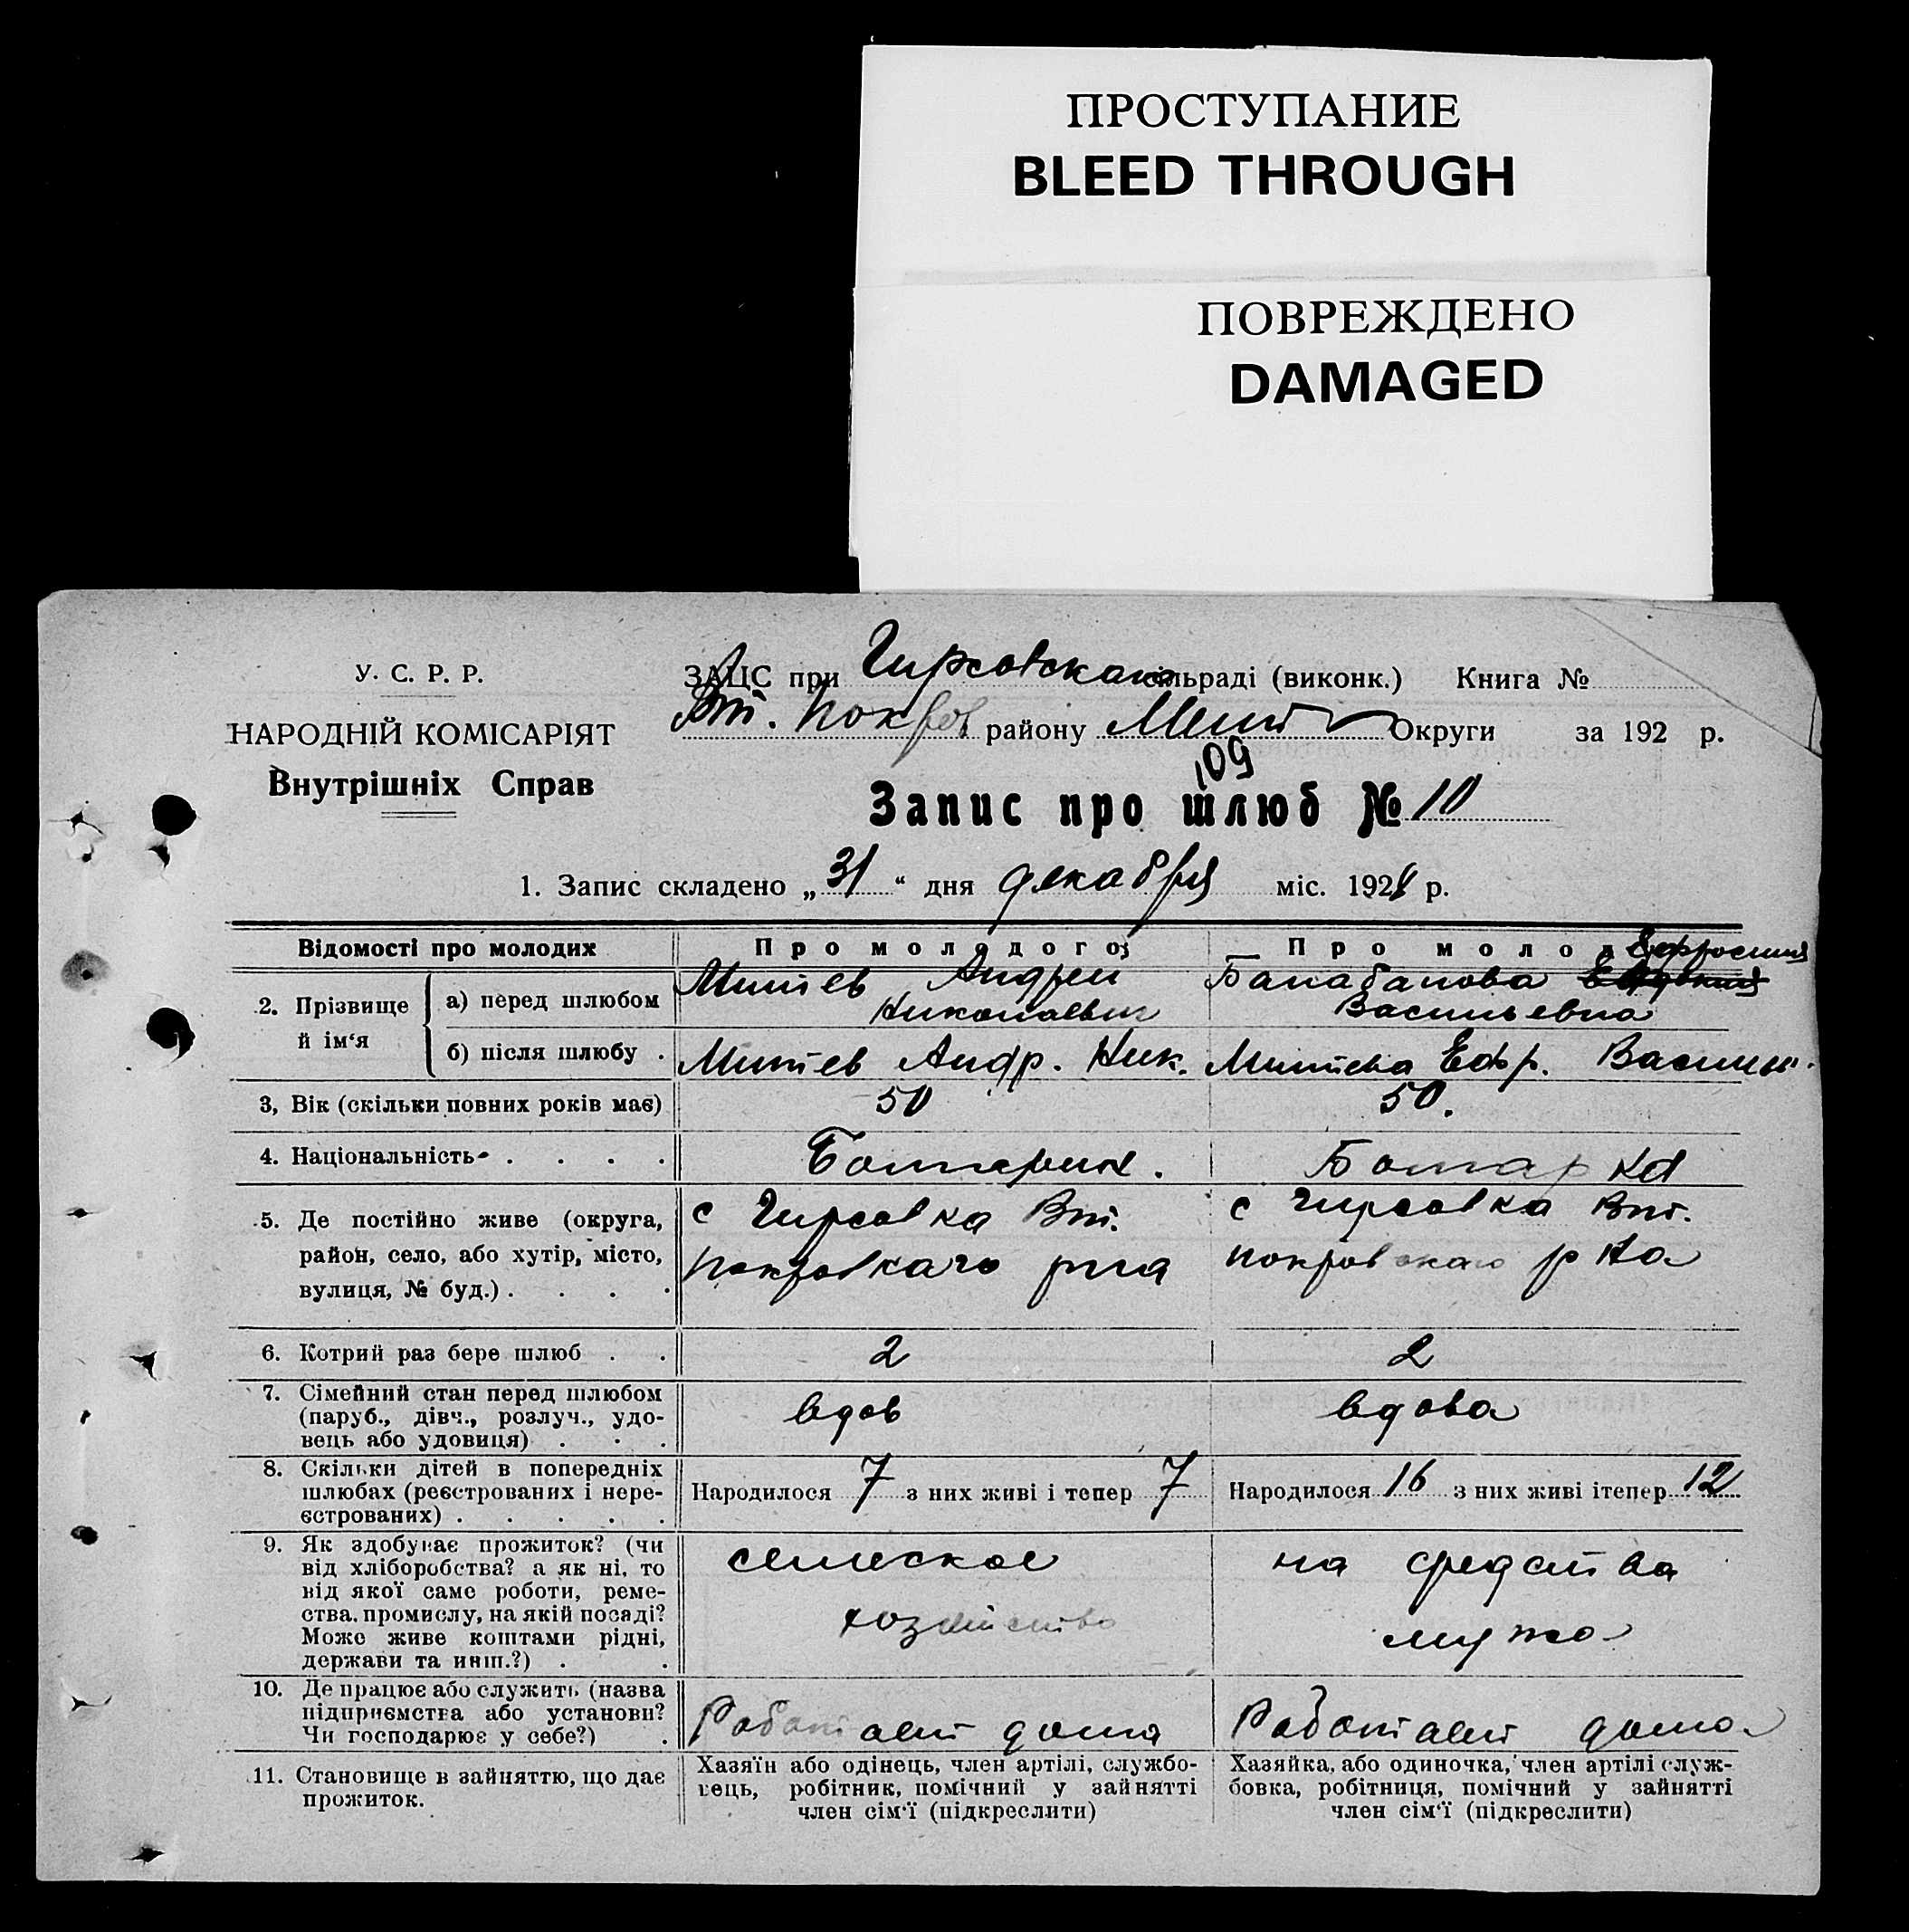 ПРОСТУПАНИЕ
BLEED THROUGH
ПОВРЕЖДЕНО
DAMAGED
У. С. Р. Р.
НАРОДНІЙ КОМІСАРІЯТ
Внутрішніх Справ
ЗАЦС при Гирсовской сільраді (виконк.) Книга №
Вт. Покров району Мели Округи за 192 р.
109
Запис про шлюб № 10
1. Запис складено „ 31 “ дня декабря міс. 192 р.
Відомості про молодих
Про молодого
Про молод
2. Прізвище й ім‘я
а) перед шлюбом
Митев Андрей
Николаевич
Ефросиния
Балабанова
Васильевна
б) після шлюбу .
Митев Андр. Ник.
Митева Ефр. Василь.
3, Вік (скільки повних років має)
50
50.
4. Національність . . . .
Болгарин.
Болгарка
5. Де постійно живе (округа,
район, село, або хутір, місто,
вулиця, № буд.) . . . .
с Гирсовка Вт.
покровкаго рна
с Гирсовка Вт.
покровскаго р на
6. Котрий раз бере шлюб . .
2
2
7. Сімейний стан перед шлюбом
(паруб., дівч., розлуч., удо-
вець або удовиця) . . .
вдов
вдова
8. Скільки дітей в попередніх
шлюбах (реєстрованих і нере-
єстрованих) . . . . .
Народилося 7 з них живі і тепер 7
Народилося 16 з них живі ітепер 12
9. Як здобуває прожиток? (чи
від хліборобства? а як ні, то
від якої саме роботи, реме-
ства, промислу, на якій посаді?
Може живе коштами рідні,
держави та инш.?) . .
селское
хозяйство
на средства
мужа
10. Де працює або служить (назва
підприємства або установи?
Чи господарює у себе?) .
Работает дома
Работает дома
11. Становище в зайняттю, що дає
прожиток.
Хазяїн або одінець, член артілі, службо-
вець, робітник, помічний у зайнятті
член сім‘ї (підкреслити)
Хазяйка, або одиночка, член артілі служ-
бовка, робітниця, помічний у зайнятті
член сім‘ї (підкреслити)